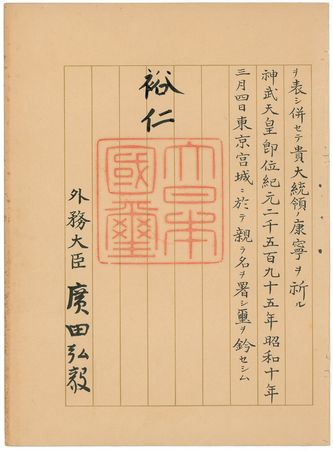 ヲ表シ併セテ貴大統領ノ康寧ヲ祈ル
神武天皇即位紀元二千五百九十五年昭和十年
三月四日東京宮城ニ於テ親ラ名ヲ署シ璽ヲ鈐セシム
裕仁
大日本
國璽
外務大臣 廣田弘毅